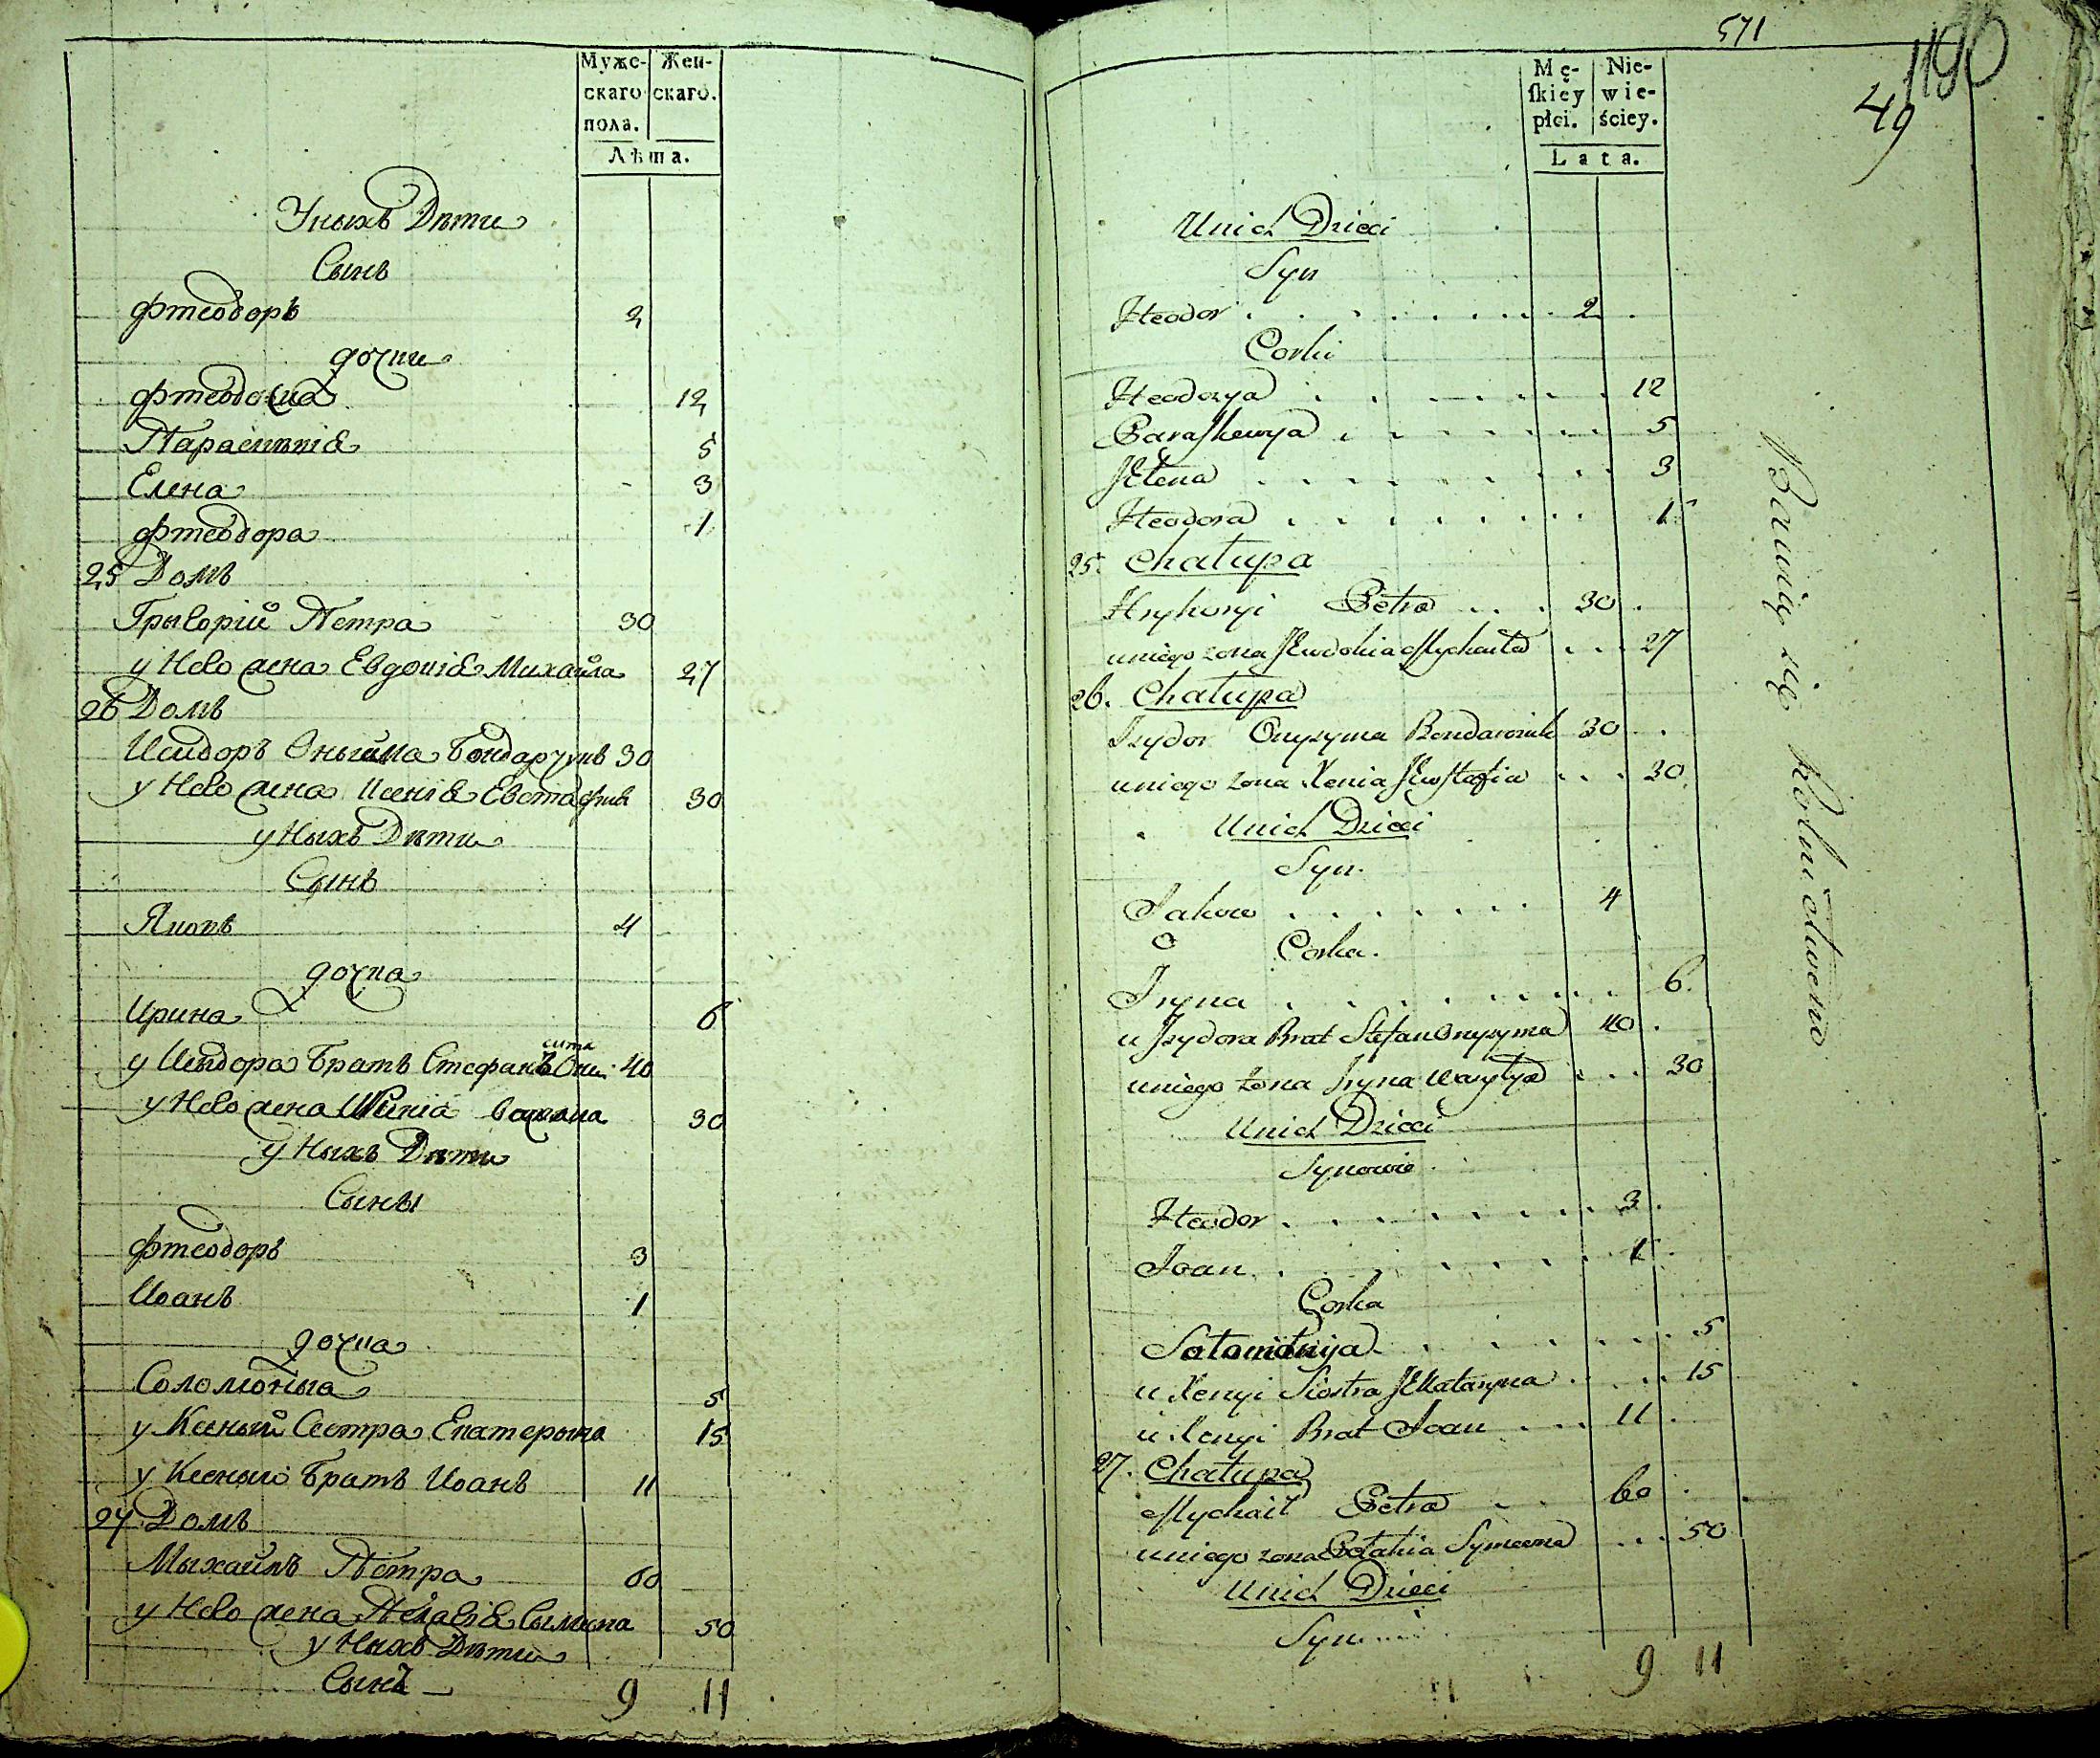 Мужс- Жен-
скаго скаго.
пола.
Лѣта.
Уныхъ Дѣти
Сынъ
Фтеодоръ 2
дочки
Фтеодосиа 12
Параскѣвіа 5
Елена 3
Фтеодора 1
25 Домъ
Грыгорій Петра 30
у Него жена Евдокіа Михайла 27
26 Домъ
Исидоръ Онысима Бондарчукъ 30
у Него жена Ксеніа Евстафия 30
у Ныхъ Дѣти
Сынъ
Яковъ 4
дочка
Ирина 6
у Исидора Братъ Стефанъ Они сима 40
у Него жена 30
у Ныхъ Дѣти
Сыны
Фтеодоръ 3
Иоанъ 1
дочка
Соломоныа 5
у Ксеныи Сестра Екатерына 15
у Ксеныи Братъ Иоанъ 11
27 Домъ
Мыхаилъ Петра 60
у Него жена Пелагіа Сымиона 50
у Ныхъ Дѣти
Сынъ
9 11
571
1190
49
Mę- Nie-
ſkiey wie-
płci. ściey.
Lata.
Unich Dzieci
Syn
Fteodor 2
Corki
Fteodozya 12
Paraſkewya 5
JEłena 3
Fteodora 1
25. Chałupa
Hryhoryi Petra 30
uniego zona JEwdokia Mychaiła 27
26. Chałupa
Izydor Onyzyma Bondarczuk 30
uniego zona Xenia JEwſtafia 30
Unich Dzieci
Syn.
Jakow 4
Corka.
Iryna 6.
u Izydora Brat Stefan Onyzyma 40
uniego zona Iryna Wasylya 30
Unich Dzieci
Synowie
Fteodor 3
Joan 1
Corka
Sołomonija 5
u Xenyi Siostra JEkataryna 15
u Xenyi Brat Joan 11
27. Chałupa
Mychaił Petra 60
uniego zona Pełahia Symeona 50
Unich Dzieci
Syn
9 11
Bawią się Rolnictwem